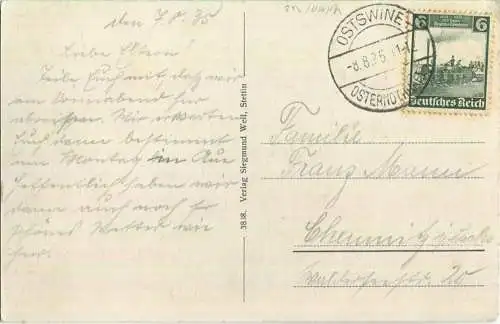 den 7.8.35
Liebe Eltern!
Teile Euch mit daß wir
am Sonnabend hier
abreisen. Wir erwarten
Euch dann bestimmt
am Montag in Aue
Hoffentlich haben wir
dann auch noch so
schönes Wetter wie
hier.
38.18. Verlag Siegmund Weil, Stettin
OSTSWINE
-8.8.35
OSTERNOTHAFEN
6 6
Deutsches Reich
Familie
Franz Mann
Chemnitz i/Sachs
str. 20